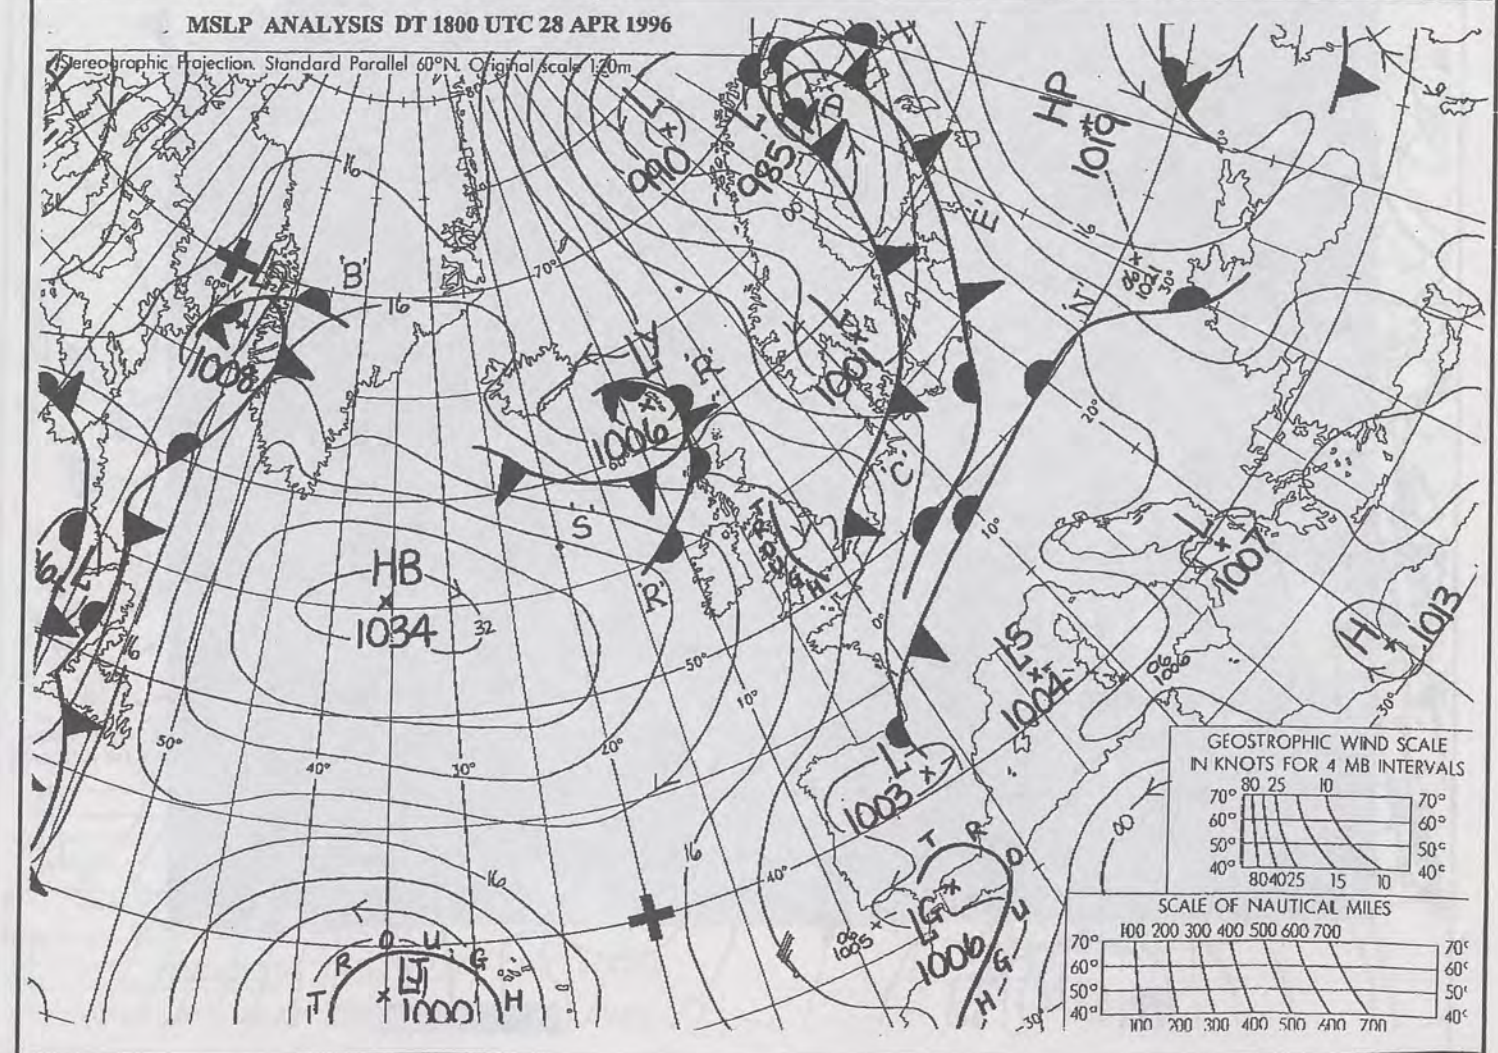 MSLP ANALYSIS DT 1800 UTC 28 APR 1996
Stereographic Projection. Standard Parallel 60°N. Original scale 1:20m
L
990
L
985
A
HP
1019
16
'E'
16
06 x
1021
30°
'N'
'B'
16
L
1008
70°
00
LY
'R'
1006
60°
L
1001
20°
'C'
10°
'S'
'R'
T
R
O
U
G
H
HB
1034
32
L
16
50°
40°
30°
20°
10°
50°
0°
L
1007
H
1013
LS
1004
06
1006
30°
LT
1003
T R O U G H
LG
1006
06
1005
40°
30°
00
16
16
T R O U G H
LJ
1000
GEOSTROPHIC WIND SCALE
IN KNOTS FOR 4 MB INTERVALS
80 25 10
70° 70°
60° 60°
50° 50°
40° 40°
80 40 25 15 10
SCALE OF NAUTICAL MILES
100 200 300 400 500 600 700
70° 70°
60° 60°
50° 50°
40° 40°
100 200 300 400 500 600 700